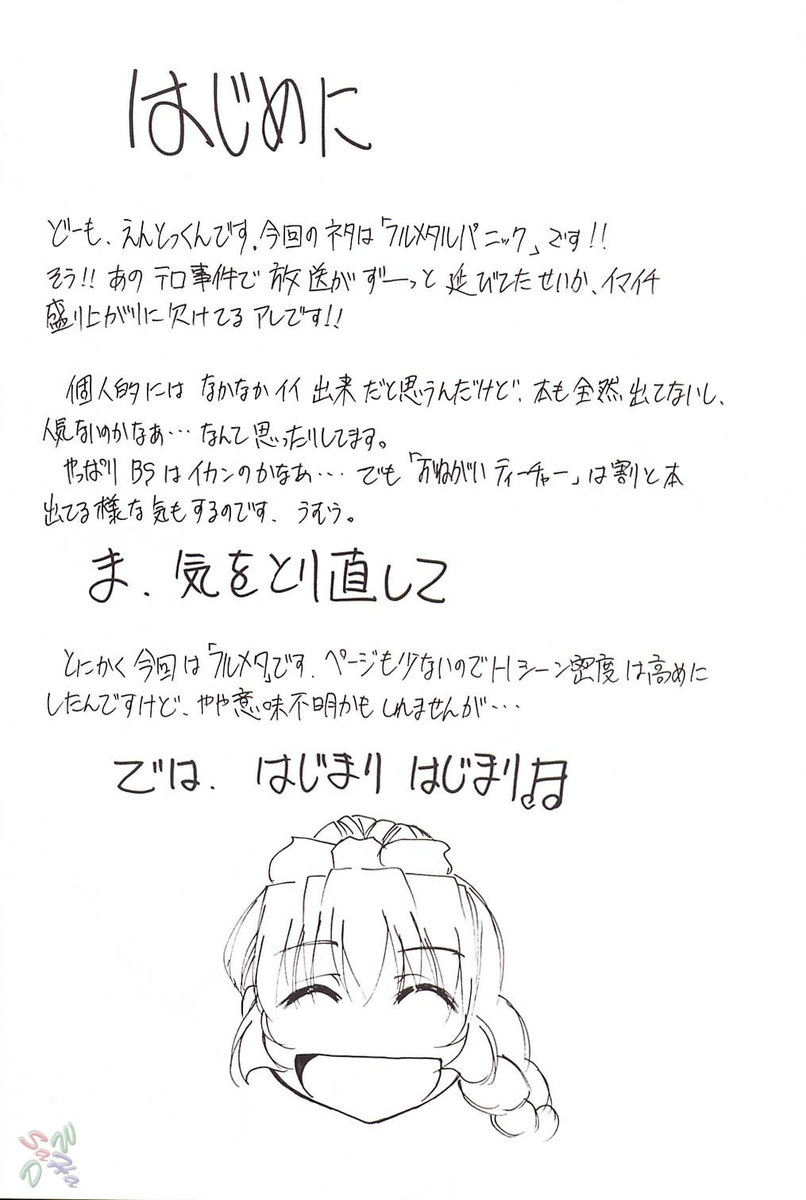 はじめに
どーも、えんとっくんです。今回のネタは「フルメタルパニック」です!!
そう!!あのテロ事件で放送がずーっと延びてたせいか、イマイチ
盛り上がりに欠けてるアレです!!
個人的にはなかなかイイ出来だと思うんだけど、本も全然出てないし、
人気ないのかなあ…なんて思ったりしてます。
やっぱりBSはイカンのかなあ…でも「おねがいティーチャー」は割と本
出てる様な気もするのです、うむう。
ま、気をとり直して
とにかく今回は「フルメタ」です、ページも少ないのでHシーン密度は高めに
したんですけど、やや意味不明かもしれませんが…
では、はじまりはじまり♫